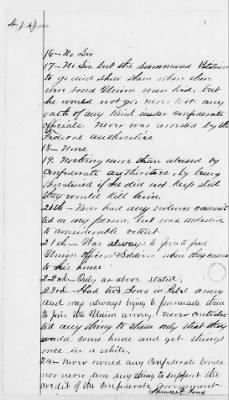 16- No Sir
17- No Sir, but she summoned
to go and show them where there
were some Union men hid, but
he would not go. never took any
oath of any kind under confederate
officials. Never was arrested by the
Federal authorities
18- None
19. Nothing more than abused by
Confederate authorities, by being
threatened if he did not keep still
they would kill him.
20th- Never had any violence committ-
ed on my person, but was
to considerable extent.
21th- Was always to
Union officers & Soldiers when they came
to his house
22nd- Only as above stated
23rd- Had two Sons in Rebel army
and was always trying to persuade them
to join the Union army. never contribut-
ed any thing to them only that they
would come home and get things
once in a while.
24- Never owned any Confederate bonds
nor never done any thing to support the
credit of the Confederate government